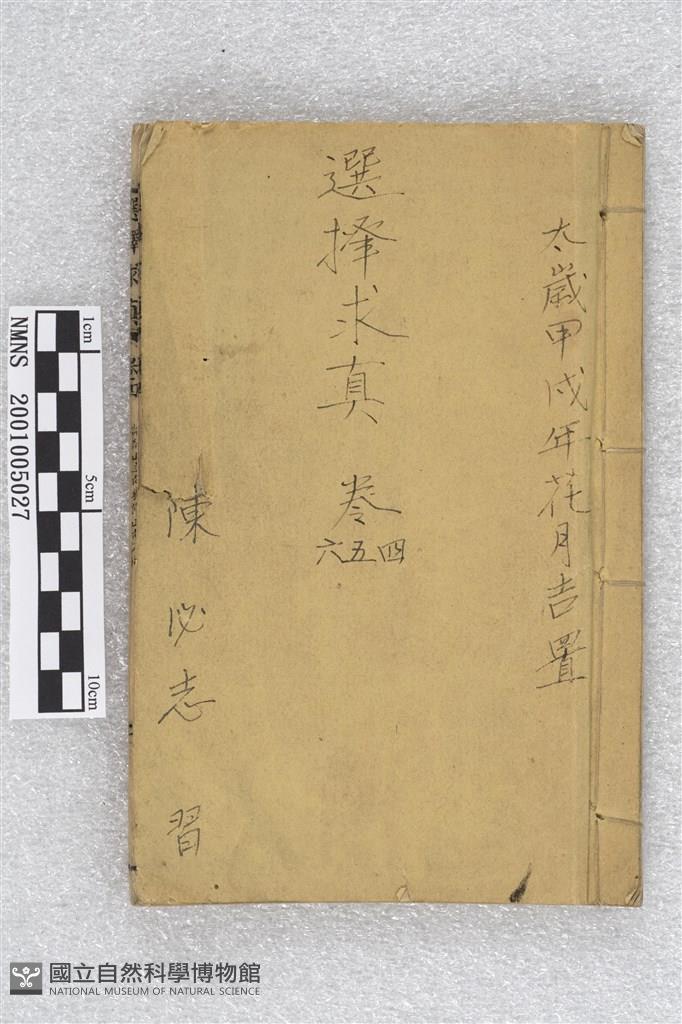 太歲甲戍年花月吉置
選擇求真 卷
四五六
陳必志 習
1cm
5cm
10cm
NMNS 2001005027
國立自然科學博物館
NATIONAL MUSEUM OF NATURAL SCIENCE